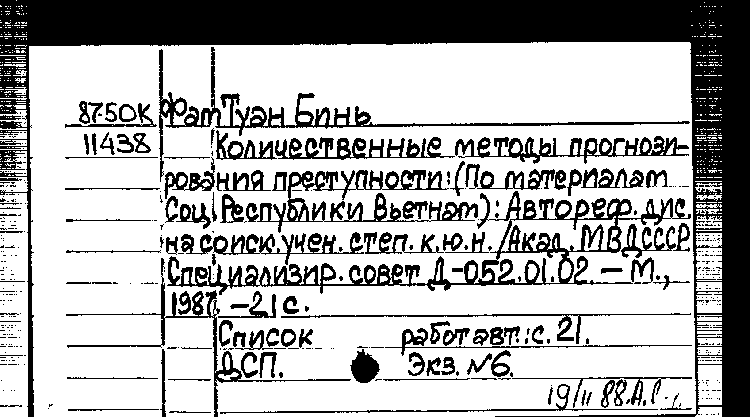 87-50К Фам Туан Бинь
11438 Количественные методы прогнози-
рования преступности: (По материалам
Соц. Республики Вьетнам): Автореф. дис.
на соиск. учен. степ. к.ю.н. /Акад. МВД СССР
Специализир. совет Д-052.01.02. — М.,
1987. — 21 с.
Список работ авт.: с. 21.
ДСП. Экз. №6.
19/II 88.